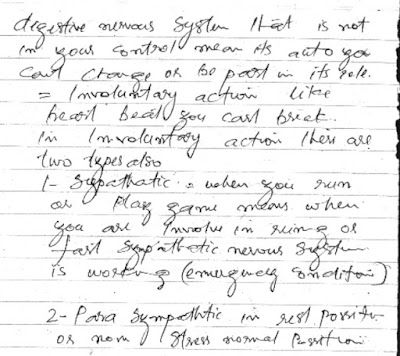 digestive nervous system that is not
in your control mean its auto you
cant change or be part in its role.
= Involuntary action like
heart beat you cant break.
in Involuntary action their are
two types also
1- Sypathatic = when you run
or play game means when
you are involve in runing or
fast Sympithetic nervous system
is working (emergency condition)
2- Para Sympathtic in rest
or non stress normal